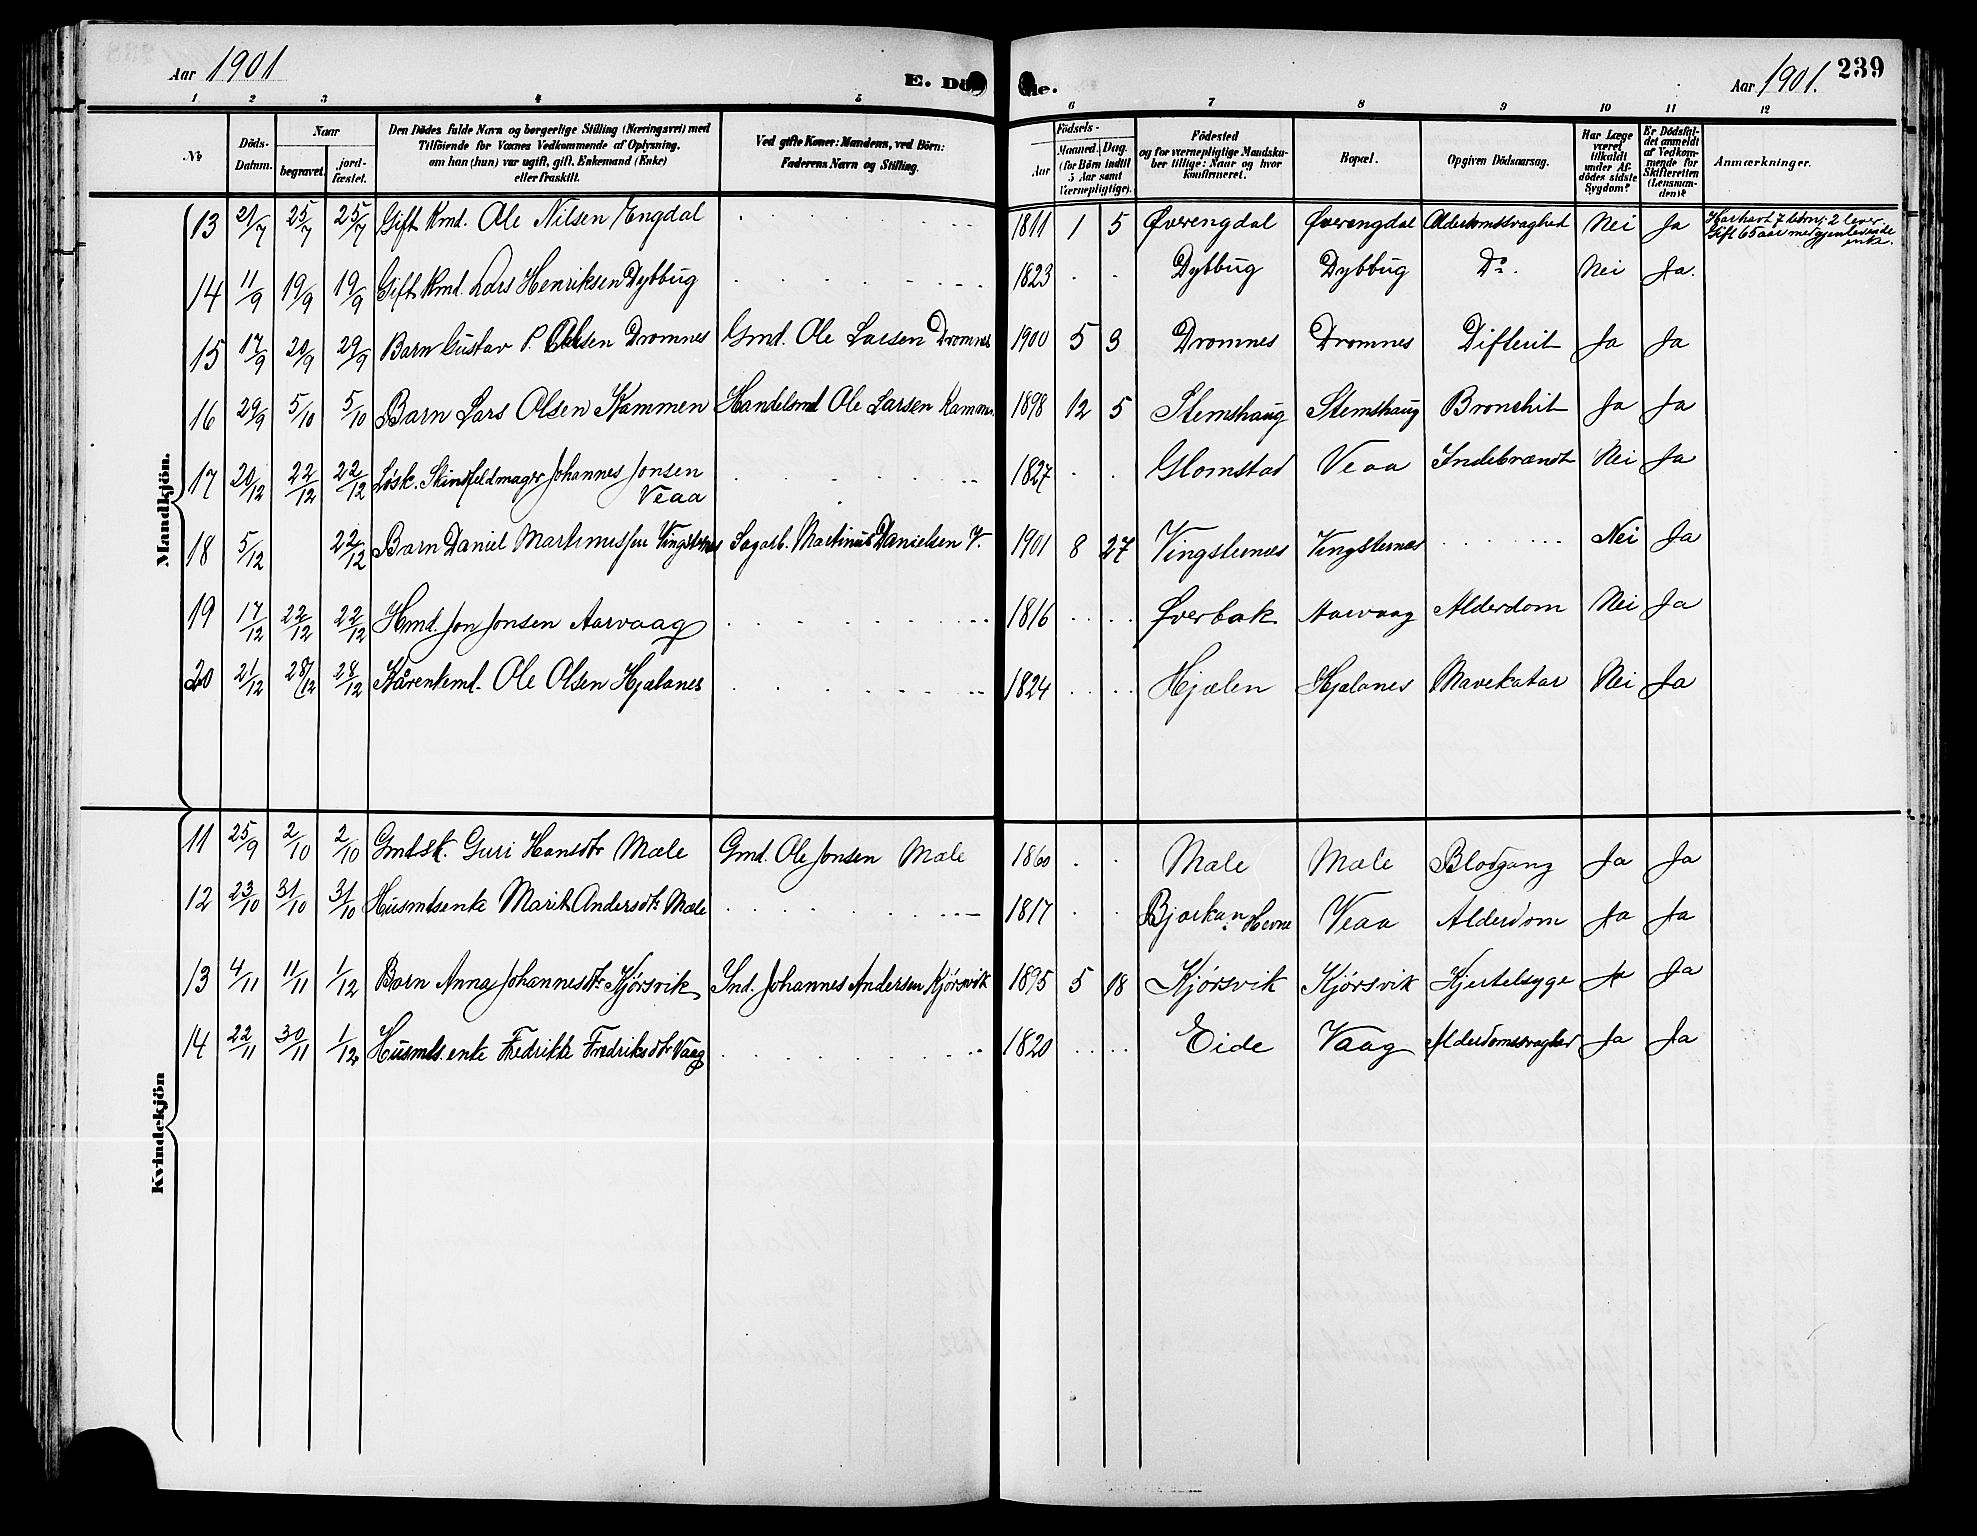 Aar 1901
E. Dö
de.
Aar 1901.
239
1 2 3 4 5 6 7 8 9 10 11 12
No
Döds-Datum.
Naar
begravet.
jord-fæstet.
Den Dödes fulde Navn og borgerlige Stilling (Næringsvei) med
Tilföiende for Voxnes Vedkommende af Oplysning,
om han (hun) var ugift, gift, Enkemand (Enke)
eller fraskilt.
Ved gifte Koner: Mandens, ved Börn:
Faderens Navn og Stilling.
Födsels-
Aar
Maaned. Dag.
(for Börn indtil
5 Aar samt
Værnepligtige).
Födested
og for værnepligtige Mandska-
ber tillige: Naar og hvor
konfirmeret.
Bopæl.
Opgiven Dödsaarsag.
Har Læge
været
tilkaldt
under Af-
dödes sidste
Sygdom?
Er Dödsfal-
det anmeldt
af Vedkom-
mende for
Skifteretten
(Lensman-
den)?
Anmærkninger.
Mandkjön.
13 21/7 25/7 25/7 Gift Kmd. Ole Nilsen Engdal 1811 1 5 Øverengdal Øverengdal Alderdomssvaghed Nei Ja Har havt 7 børn; 2 lever.
Gift 65 aar med gjenlevende
enke.
14 11/9 19/9 19/9 Gift Kmd. Lars Henriksen Dybbug 1823 Dybbug Dybbug Do. Nei Ja.
15 17/9 20/9 29/9 Barn Gustav P. Olsen Dromnes Gmd. Ole Larsen Dromnes 1900 5 3 Dromnes Dromnes Difterit Ja Ja
16 29/9 5/10 5/10 Barn Lars Olsen Kammen Handelsmd Ole Larsen Kammen 1898 12 5 Stemshaug Stemshaug Bronchit Ja Ja
17 20/12 22/12 22/12 Løsk. Skindfeldmager Johannes Jonsen
Veaa 1827 Glomstad Veaa Indebrændt Nei Ja
18 5/12 22/12 Barn Daniel Martinussen Vingsternes Sagarb. Martinus Danielsen V. 1901 8 27 Vingsternes Vingsternes Nei Ja
19 17/12 22/12 22/12 Hmd. Jon Jonsen Aarvaag 1816 Øverbak Aarvaag Alderdom Nei Ja
20 21/12 28/12 28/12 Kårenkemd. Ole Olsen Hjælanes 1824 Hjælen Hjælanes Mavekatar Nei Ja
Kvindekjön
11 25/9 2/10 2/10 Gmdsk. Guri Hansdtr Mæle Gmd. Ole Jonsen Mæle 1860 Mæle Mæle Blodgang Ja Ja
12 23/10 31/10 31/10 Husmdsenke Marit Andersdtr Mæle 1817 Bjørkan i Hevne Veaa Alderdom Ja Ja
13 4/11 11/11 1/12 Barn Anna Johannesdtr Kjørsvik Ind. Johannes Andersen Kjørsvik 1895 5 18 Kjørsvik Kjørsvik Kjertelsyge Ja Ja
14 22/11 30/11 1/12 Husmds.enke Fredrikke Fredriksdtr Vaag 1820 Eide Vaag Alderdomssvaghed Ja Ja